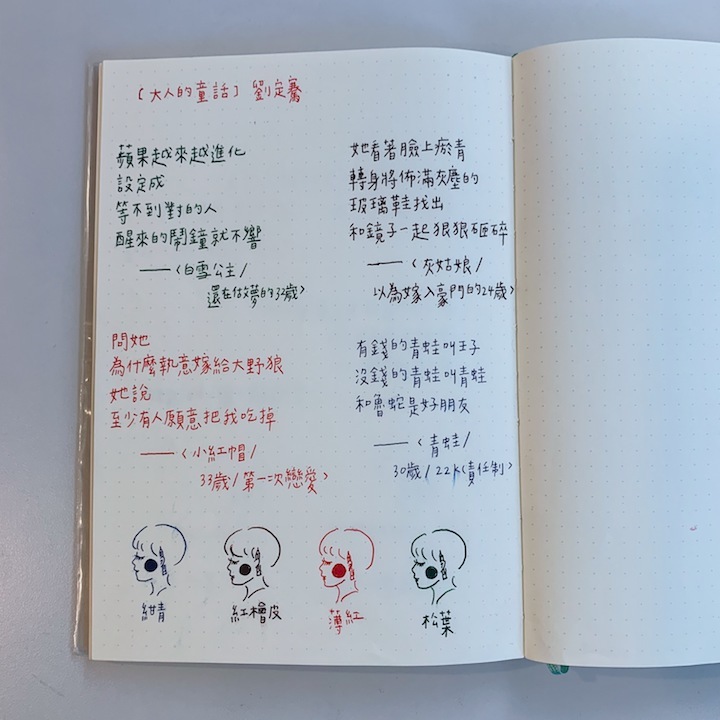 〔大人的童話〕劉定騫
蘋果越來越進化
設定成
等不到對的人
醒來的鬧鐘就不響
——〈白雪公主/
還在做夢的32歲〉
她看著臉上瘀青
轉身將佈滿灰塵的
玻璃鞋找出
和鏡子一起狠狠砸碎
——〈灰姑娘/
以為嫁入豪門的24歲〉
問她
為什麼執意嫁給大野狼
她說
至少有人願意把我吃掉
——〈小紅帽/
33歲/第一次戀愛〉
有錢的青蛙叫王子
沒錢的青蛙叫青蛙
和魯蛇是好朋友
——〈青蛙/
30歲/22K(責任制〉
紺青
紅檜皮
薄紅
松葉